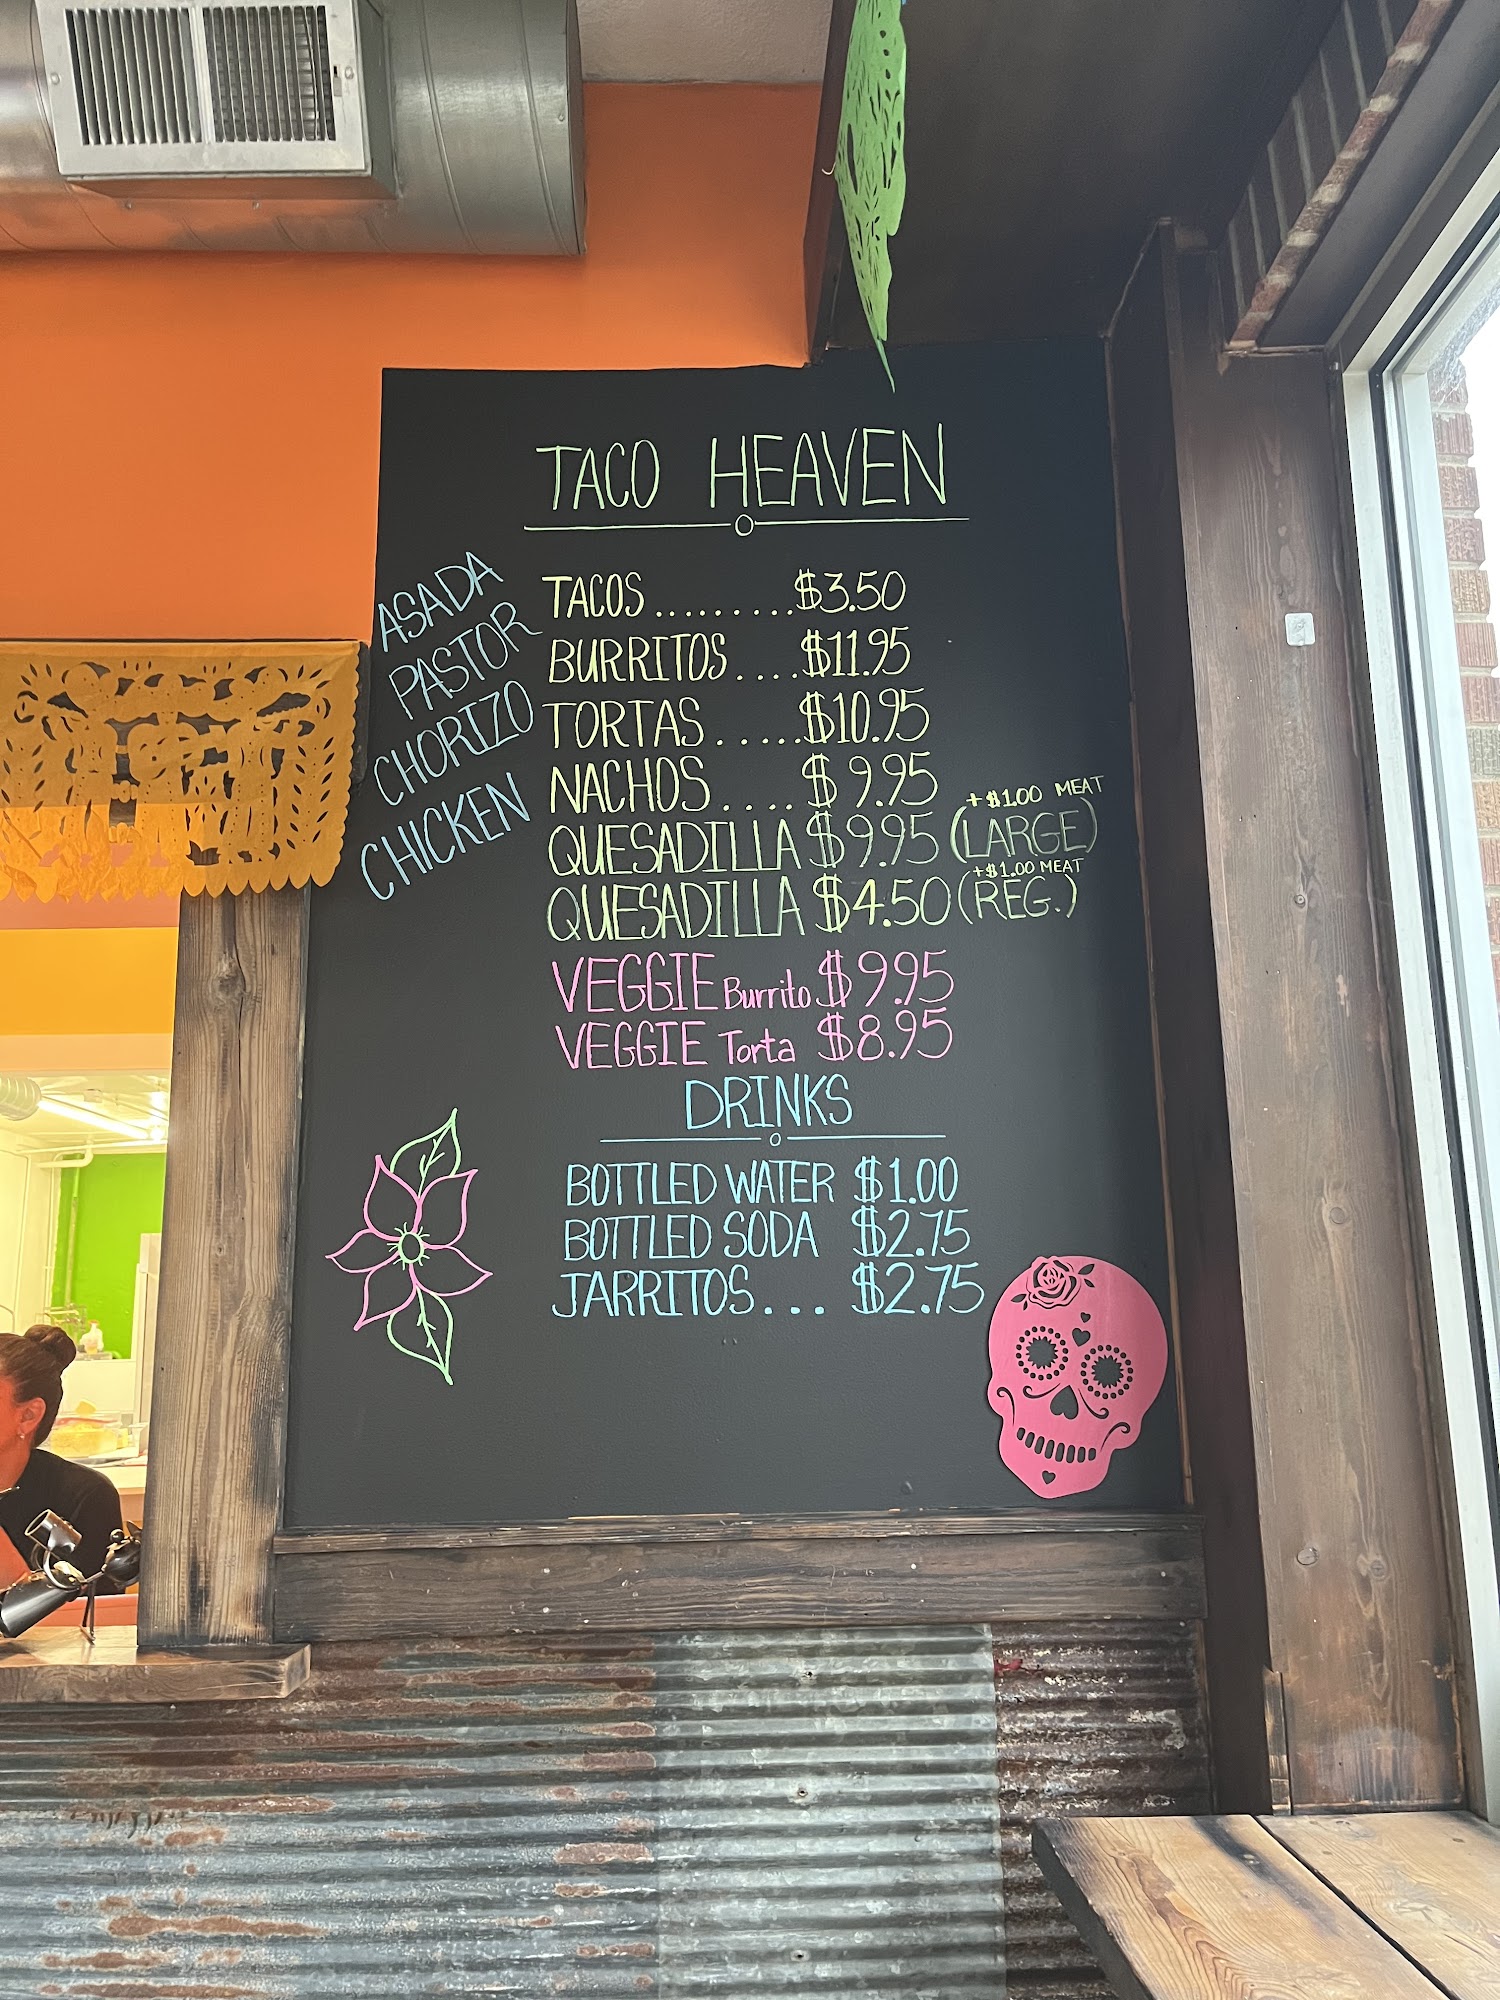 TACO HEAVEN
ASADA
PASTOR
CHORIZO
CHICKEN
TACOS.........$3.50
BURRITOS....$11.95
TORTAS.....$10.95
NACHOS....$9.95
+$1.00 MEAT
QUESADILLA $9.95 (LARGE)
+$1.00 MEAT
QUESADILLA $4.50 (REG.)
VEGGIE Burrito $9.95
VEGGIE Torta $8.95
DRINKS
BOTTLED WATER $1.00
BOTTLED SODA $2.75
JARRITOS... $2.75